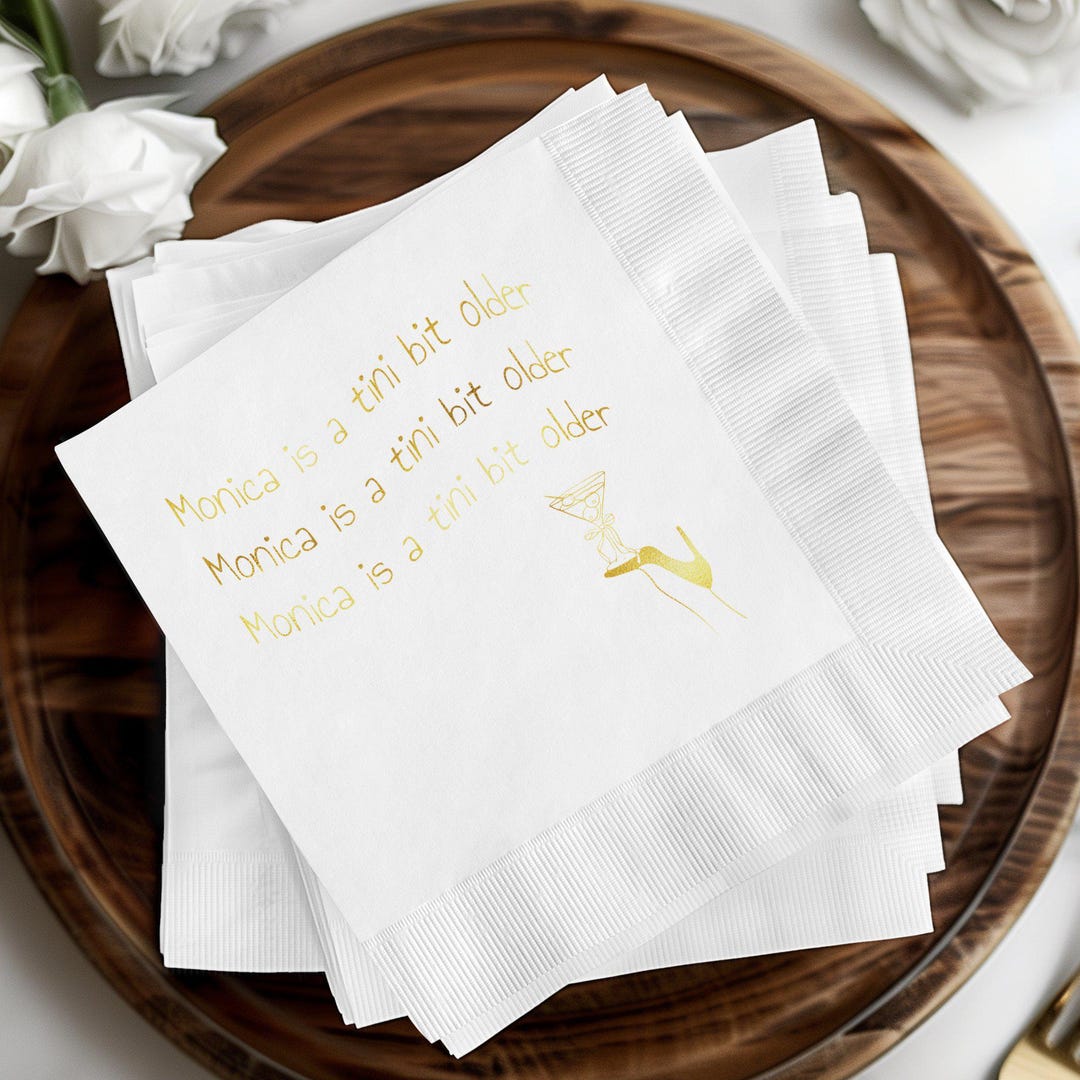 Monica is a tini bit older
Monica is a tini bit older
Monica is a tini bit older